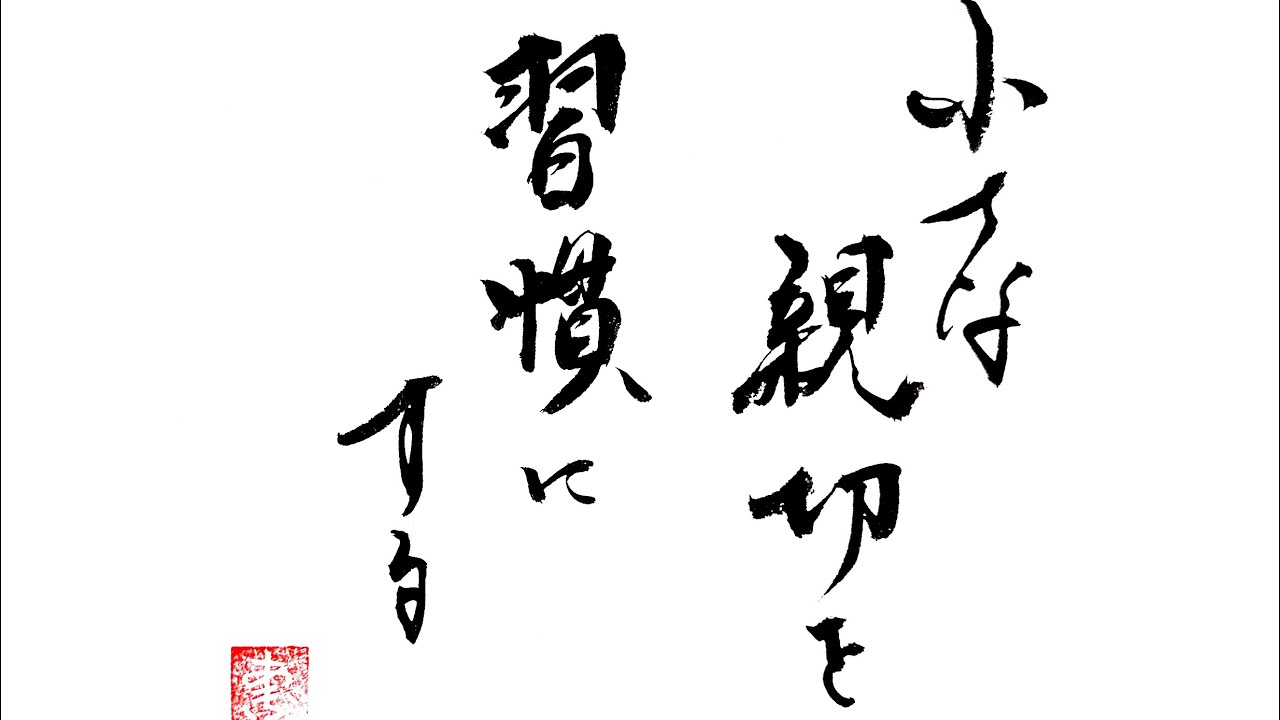 小さな
親切を
習慣に
する